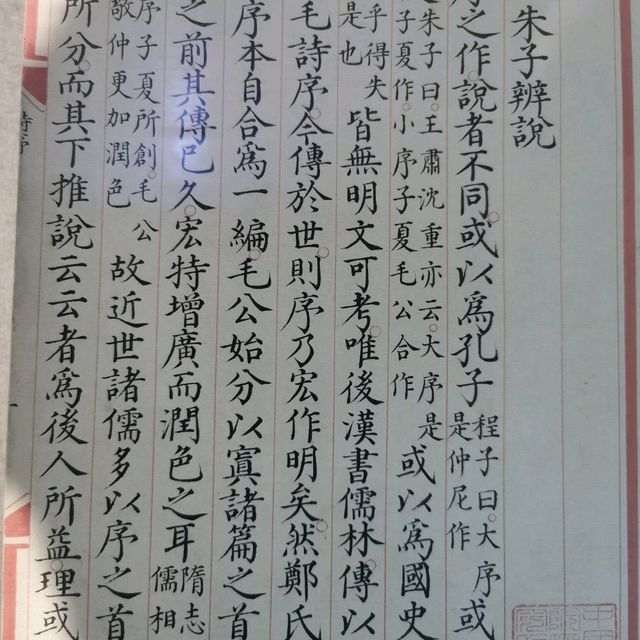 朱子辨說
之作說者不同或以爲孔子程子曰大序是仲尼作或
朱子曰王肅沈重亦云大序是子夏作小序子夏毛公合作或以爲國史
乎得失是也皆無明文可考唯後漢書儒林傳以
毛詩序今傳於世則序乃宏作明矣然鄭氏
序本自合爲一編毛公始分以寘諸篇之首
之前其傳已久宏特增廣而潤色之耳隋志儒相
序子夏所創毛公敬仲更加潤色故近世諸儒多以序之首
所分而其下推說云云者爲後人所益理或